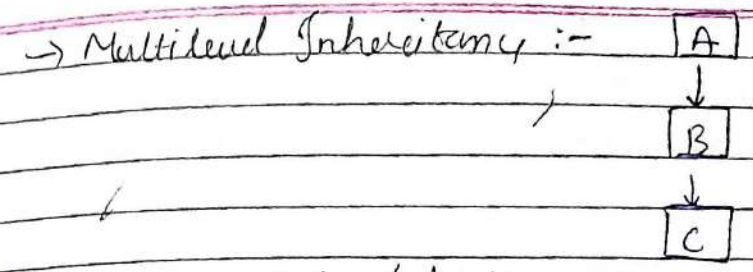 → Multilevel Inheritance :- A
B
C